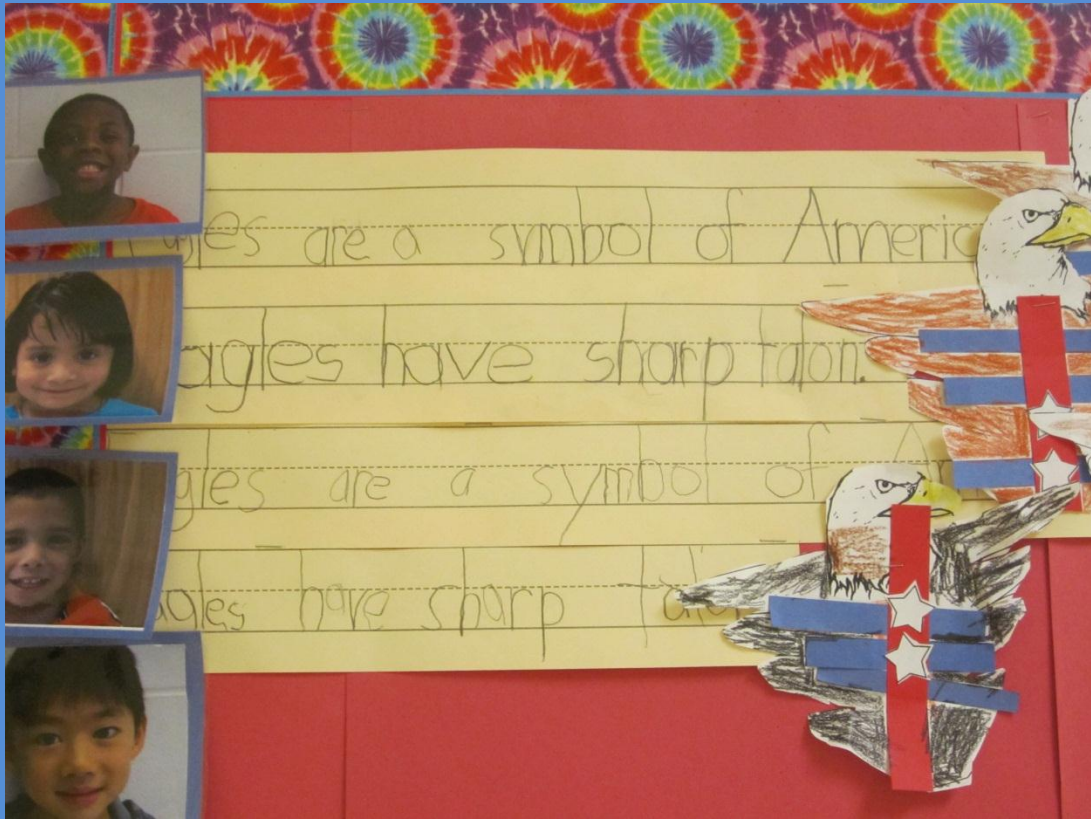 Eagles are a symbol of America
Eagles have sharp talon.
Eagles are a symbol of Am
Eagles have sharp talo